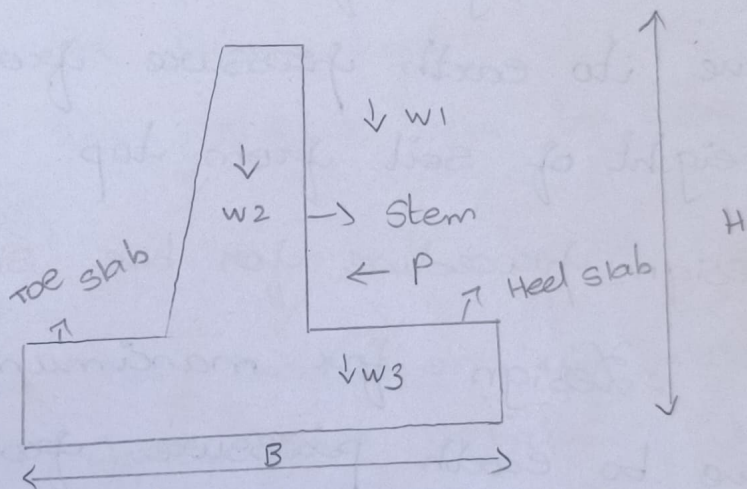 ↓ W1
↓
W2
→ Stem
← P
H
Toe slab
Heel slab
↓ W3
B